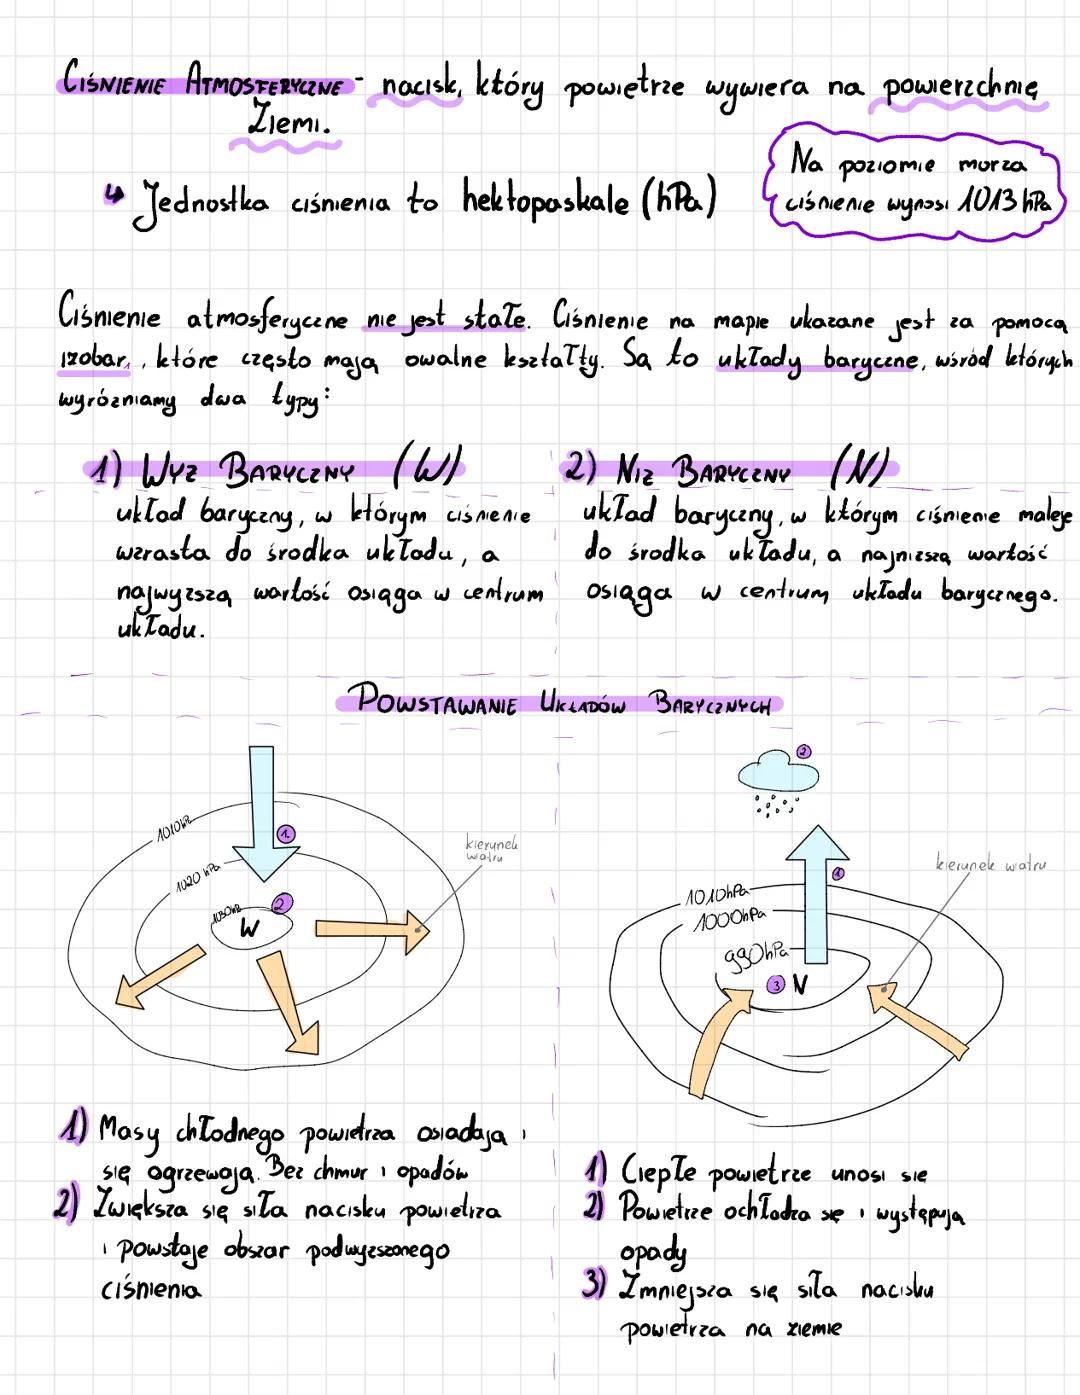 CIŚNIENIE ATMOSFERYCZNE - nacisk, który powietrze wywiera na powierzchnię
Ziemi.
Na poziomie morza
ciśnienie wynosi 1013 hPa
↳ Jednostka ciśnienia to hektopaskale (hPa)
Ciśnienie atmosferyczne nie jest stałe. Ciśnienie na mapie ukazane jest za pomocą
izobar, , które często mają owalne kształty. Są to układy baryczne, wśród których
wyróżniamy dwa typy:
1) WYŻ BARYCZNY (W)
układ baryczny, w którym ciśnienie
wzrasta do środka układu, a
najwyższą wartość osiąga w centrum
układu.
2) NIŻ BARYCZNY (N)
układ baryczny, w którym ciśnienie maleje
do środka układu, a najniższą wartość
osiąga w centrum układu barycznego.
POWSTAWANIE UKŁADÓW BARYCZNYCH
1010hPa
1020 hPa
1030hPa
W
1.
2
kierunek
wiatru
2
1
kierunek wiatru
1010hPa
1000hPa
990hPa
3 N
1) Masy chłodnego powietrza osiadają i
się ogrzewają. Bez chmur i opadów
2) Zwiększa się siła nacisku powietrza
i powstaje obszar podwyższonego
ciśnienia
1) Ciepłe powietrze unosi się
2) Powietrze ochładza się i występują
opady
3) Zmniejsza się siła nacisku
powietrza na ziemie